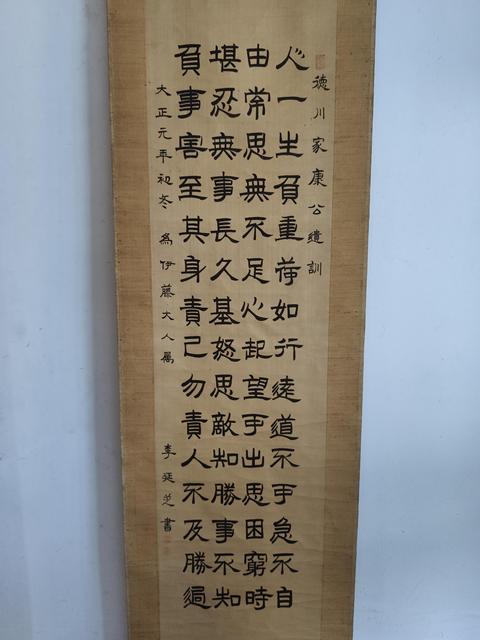 德川家康公遺訓
人一生負重荷如行遠道不手急不自
由常思無不足心起望手出思困窮時
堪忍無事長久基怒思敵知勝事不知
負事害至其身責己勿責人不及勝過
大正元年初冬 為伊藤大人属 李延芝書